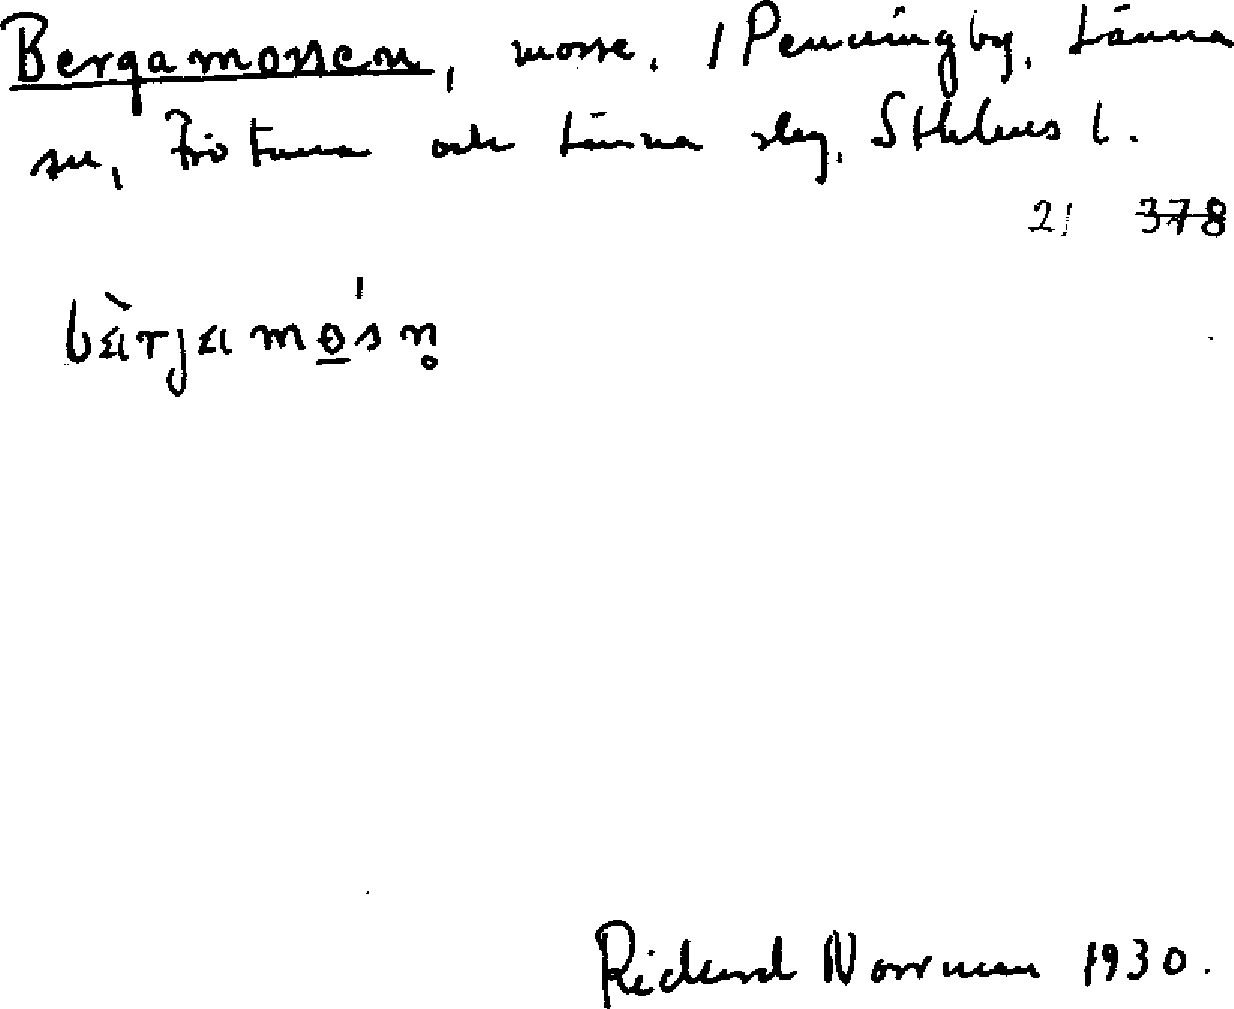 Bergamossen, mosse. / Penningby, Länna
sn, Frötuna och Länna slg, Sthlms l.
21 378
bèrgamós
Rickard Norrman 1930.